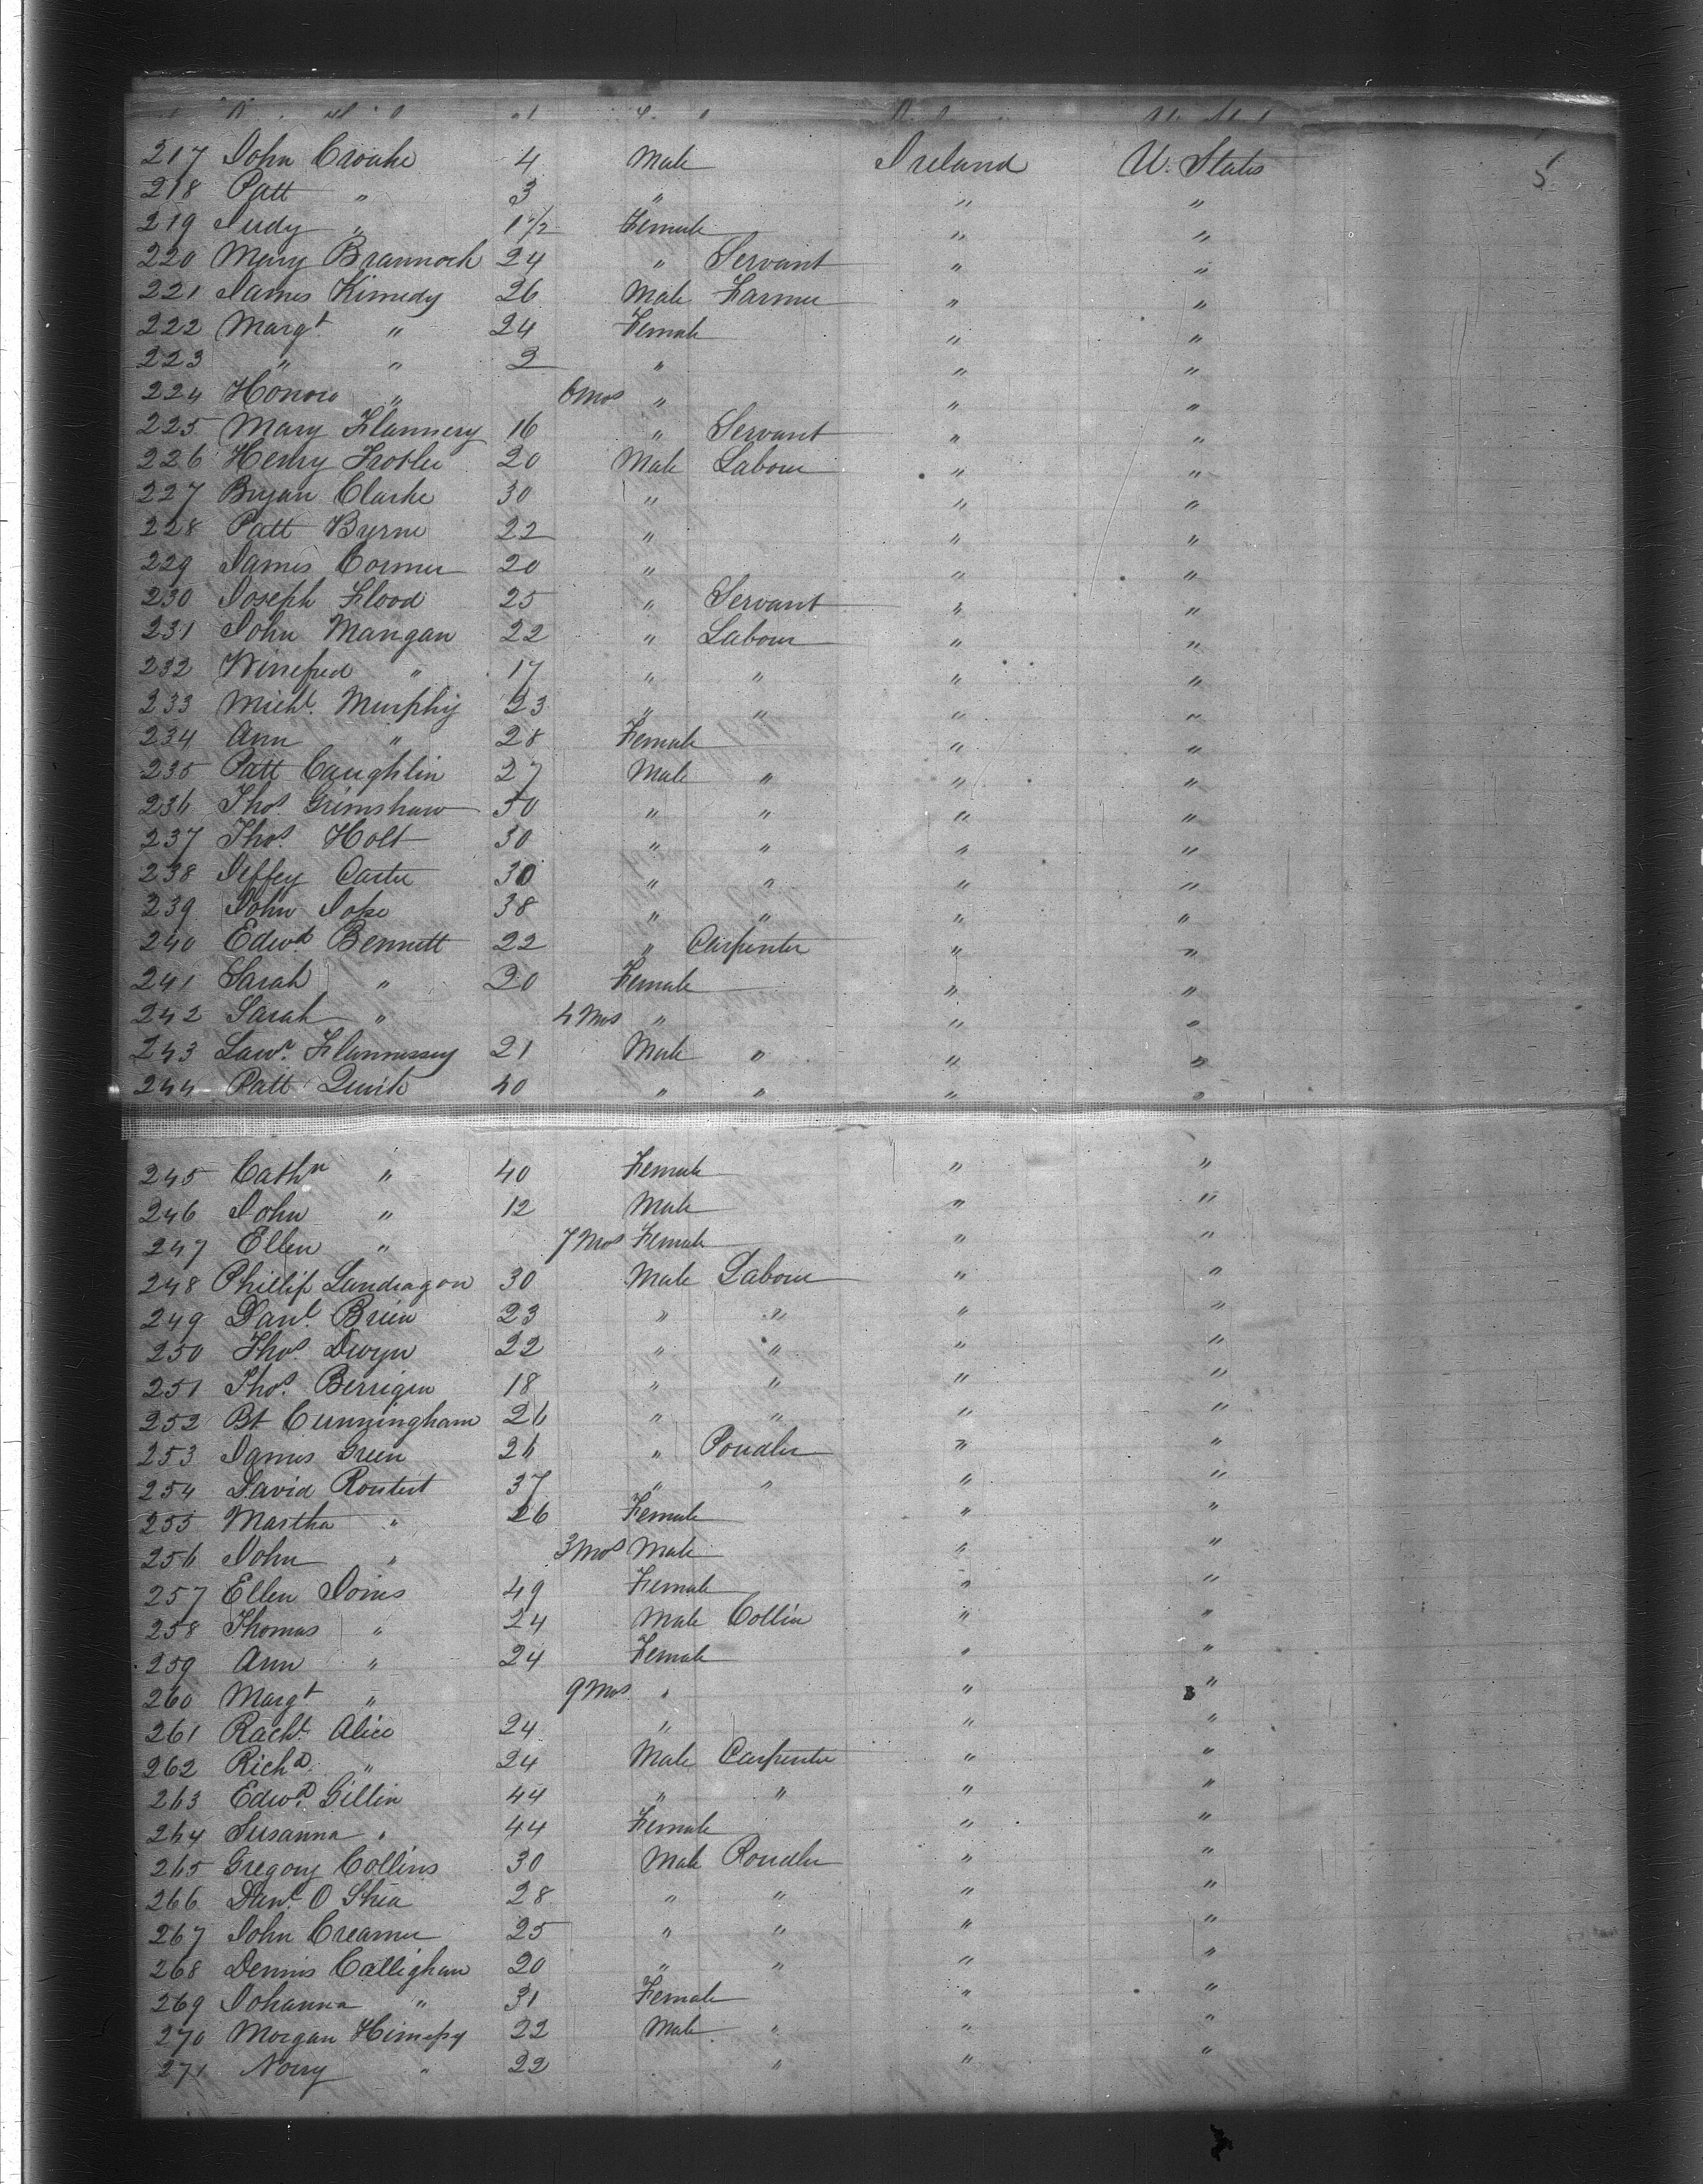 217 John Croake 4 Male Ireland U. States 5
218 Patt " 3 " " "
219 Judy " 1 1/2 Female " "
220 Mary Brannock 24 " Servant " "
221 James Kimedy 26 Male Farmer " "
222 Margt " 24 Female " "
223 " " 2 " " "
224 Honora " 6 Mos " " "
225 Mary Flannery 16 " Servant " "
226 Henry 20 Male Labour " "
227 Bryan Clarke 30 " " "
228 Patt Byrne 22 " " "
229 James Cormer 20 " " "
230 Joseph Flood 25 " Servant " "
231 John Mangan 22 " Labour " "
232 Winefred " 17 " " " "
233 Michl. Murphy 23 " " " "
234 Ann " 28 Female " "
235 Patt Caughlin 27 Male " " "
236 Thos. Grimshaw 50 " " " "
237 Thos. Holt 30 " " " "
238 Jeffey Carter 30 " " " "
239 John 38 " " " "
240 Edwd. Bennett 22 " Carpenter " "
241 Sarah " 20 Female " "
242 Sarah " 4 Mos " " "
243 Lawr. Flannessey 21 Male " " "
244 Patt Quirk 40 " " " "
245 Cathn " 40 Female " "
246 John " 12 Male " "
247 Ellen " 7 Mos Female " "
248 Phillip Landragon 30 Male Labour " "
249 Danl. Brien 23 " " " "
250 Thos. Dwyn 22 " " " "
251 Thos. Berrigen 18 " " " "
252 Bt Cunningham 26 " " " "
253 James Green 26 " Poudler " "
254 David 37 " " " "
255 Martha " 26 Female " "
256 John " 3 Mos Male " "
257 Ellen Joins 49 Female " "
258 Thomas " 24 Male Collier " "
259 Ann " 24 Female " "
260 Margt " 9 Mos " " "
261 Rachl. Alice 24 " " "
262 Richd. " 24 Male Carpenter " "
263 Edwd. Gillin 44 " " " "
264 Susanna " 44 Female " "
265 Gregory Collins 30 Male Poudler " "
266 Danl. O Shea 28 " " " "
267 John Creamer 25 " " " "
268 Dennis Callighan 20 " " " "
269 Johanna " 31 Female " "
270 Morgan 22 Male " " "
271 Norry " 22 " " "